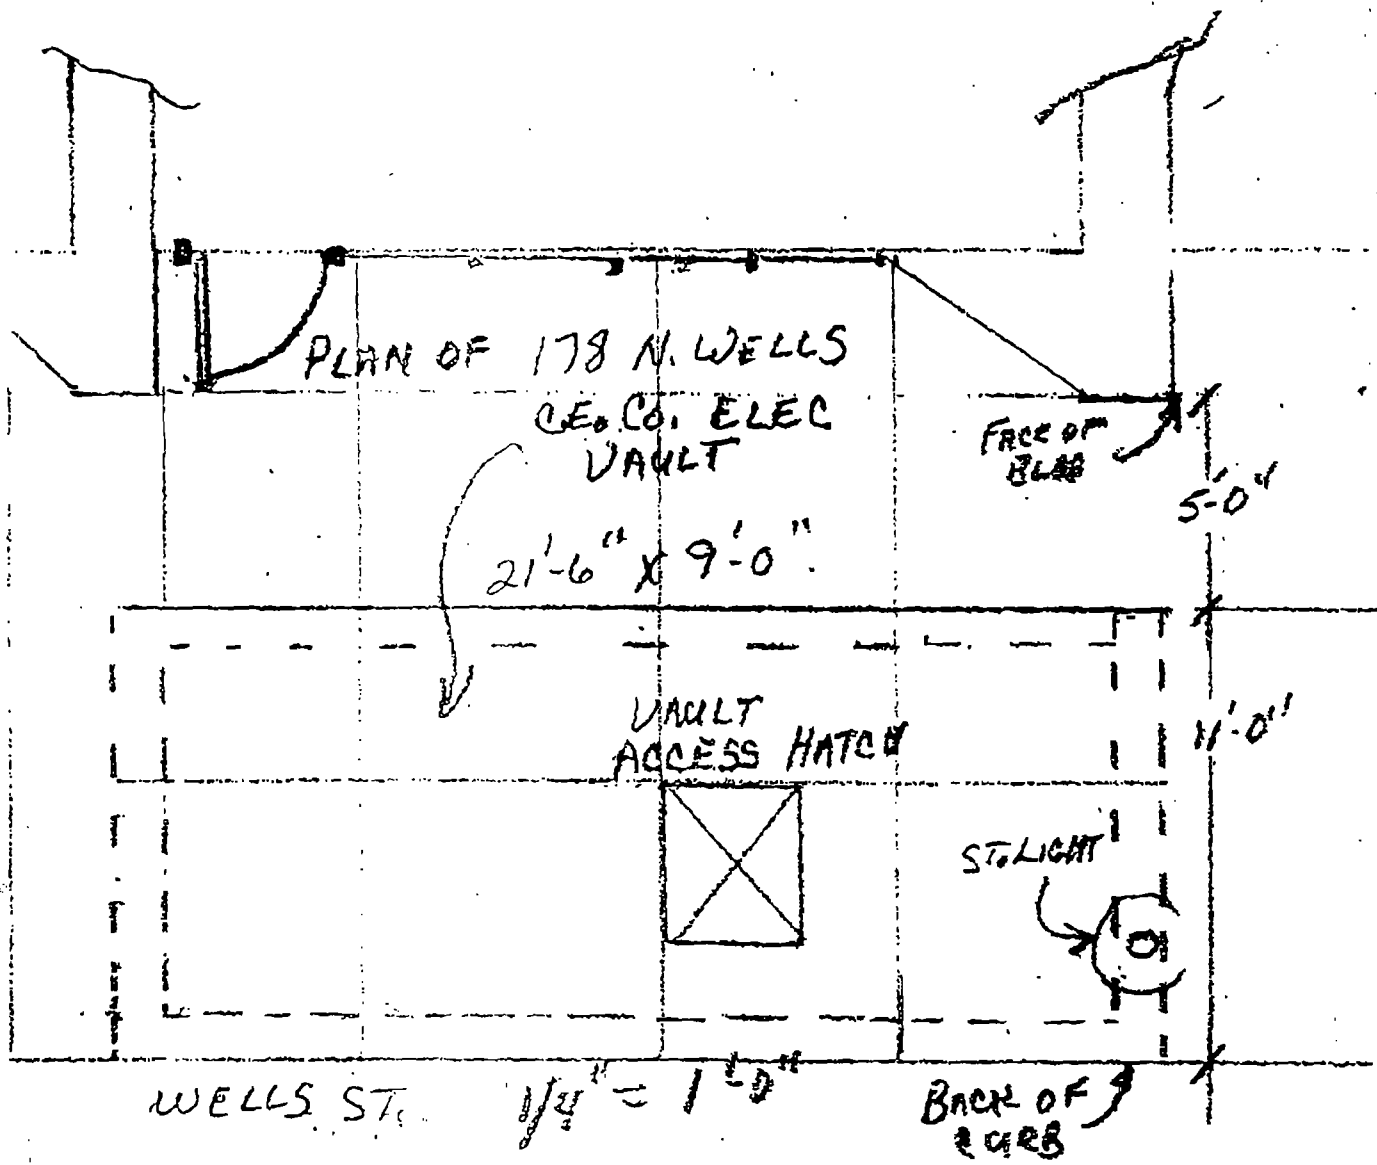 PLAN OF 178 N. WELLS
C.E. Co. ELEC
VAULT
21'-6" X 9'-0"
FACE OF
BLDG
5'-0"
VAULT
ACCESS HATCH
11'-0"
ST. LIGHT
WELLS ST. 1/4" = 1'-0"
BACK OF
CURB